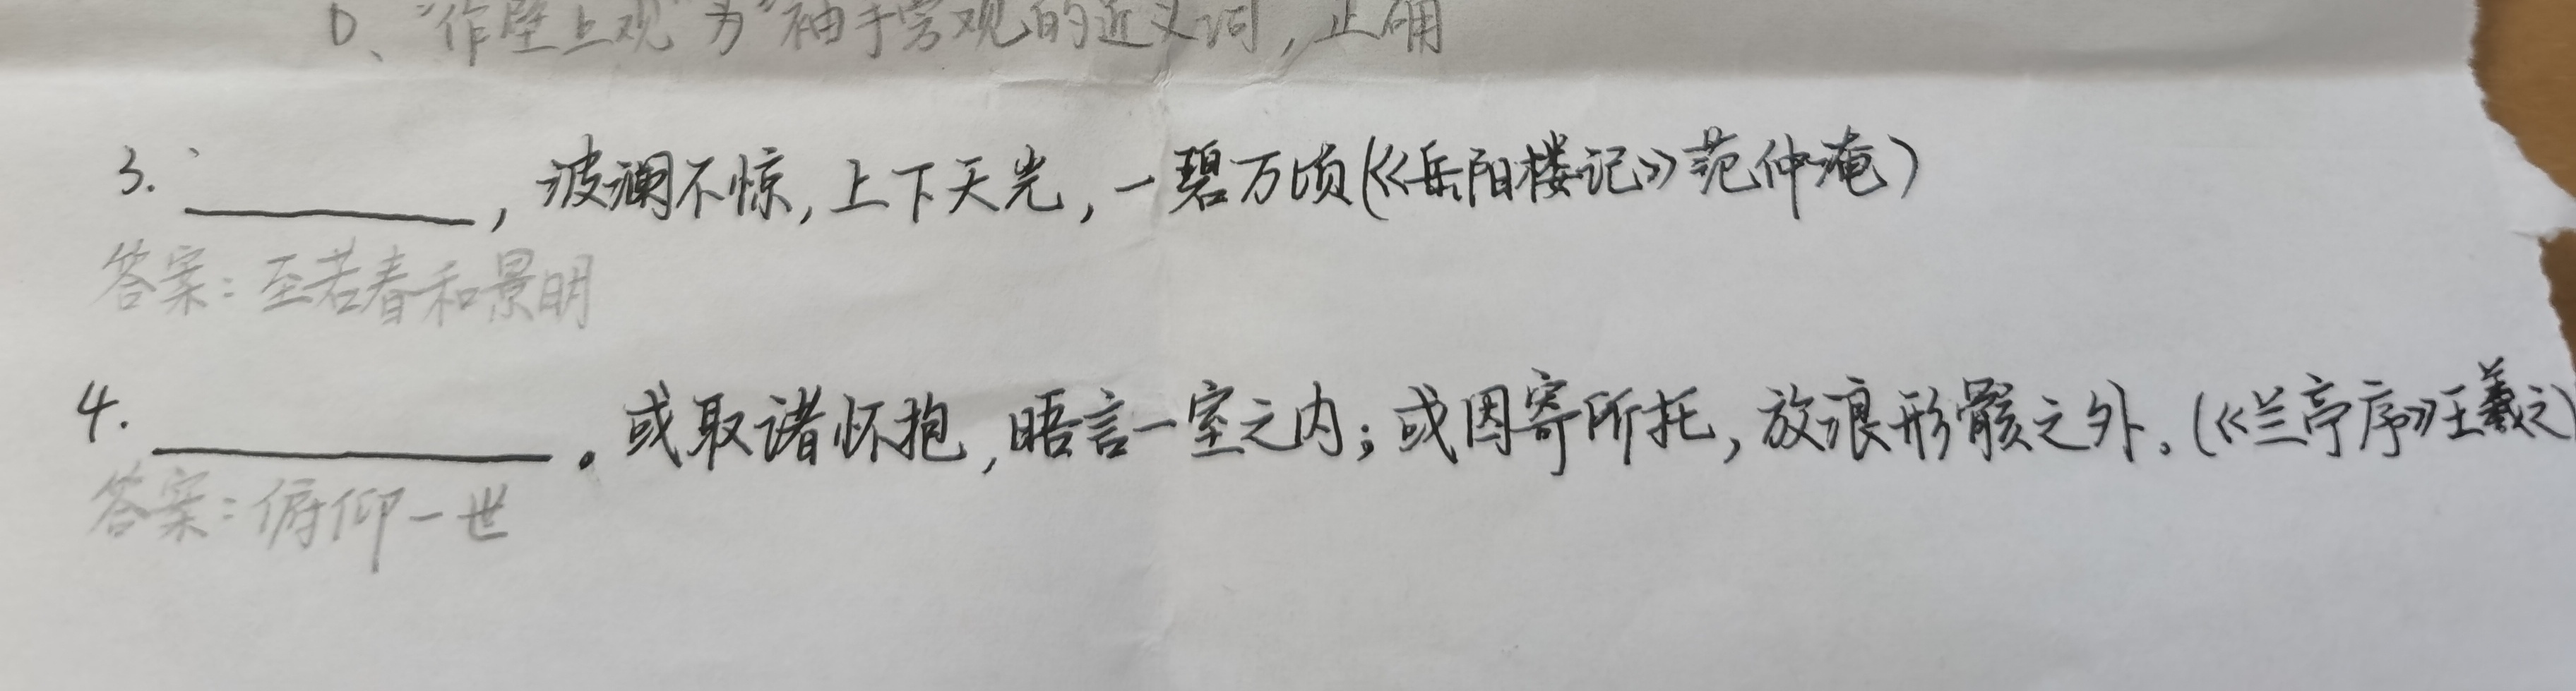 D、“作壁上观”为“袖手旁观的近义词，正确
3. ______，波澜不惊，上下天光，一碧万顷(《岳阳楼记》范仲淹)
答案：至若春和景明
4. ______。或取诸怀抱，晤言一室之内；或因寄所托，放浪形骸之外。(《兰亭序》王羲之)
答案：俯仰一世